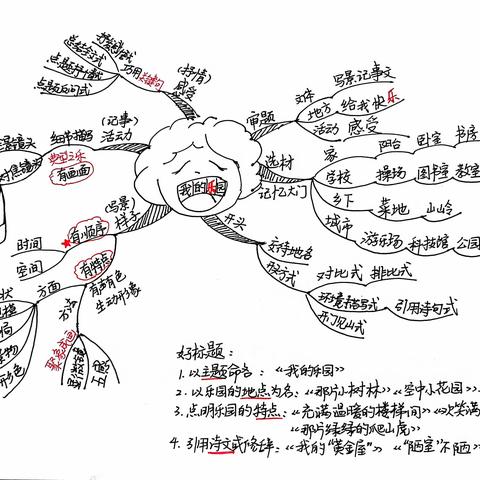 巧用关键句
点题抒情式
点题反问式
(抒情)
感受
审题
文体
写景记事文
地方
给我快乐
活动
感受
(记事)
活动
细节描写
典型音乐
有画面
我的乐园
选材
记忆大门
家
阳台
卧室
书房
学校
操场
图书室
教室
乡下
菜地
山岭
城市
游乐场
科技馆
公园
(写景)
样子
有顺序
时间
空间
有特点
有声有色
生动形象
方面
方法
形色
开头
交待地名
形方式
对比式
排比式
环境描写式
引用诗句式
开门见山式
好标题:
1. 以主题命名:《我的乐园》
2. 以乐园的地点为名:《那片小树林》《空中小花园》
3. 点明乐园的特点:《充满温暖的楼梯间》《欢笑满
《那片绿绿的爬山虎》
4. 引用诗文或修辞:《我的"黄金屋"》《"陋室"不陋》